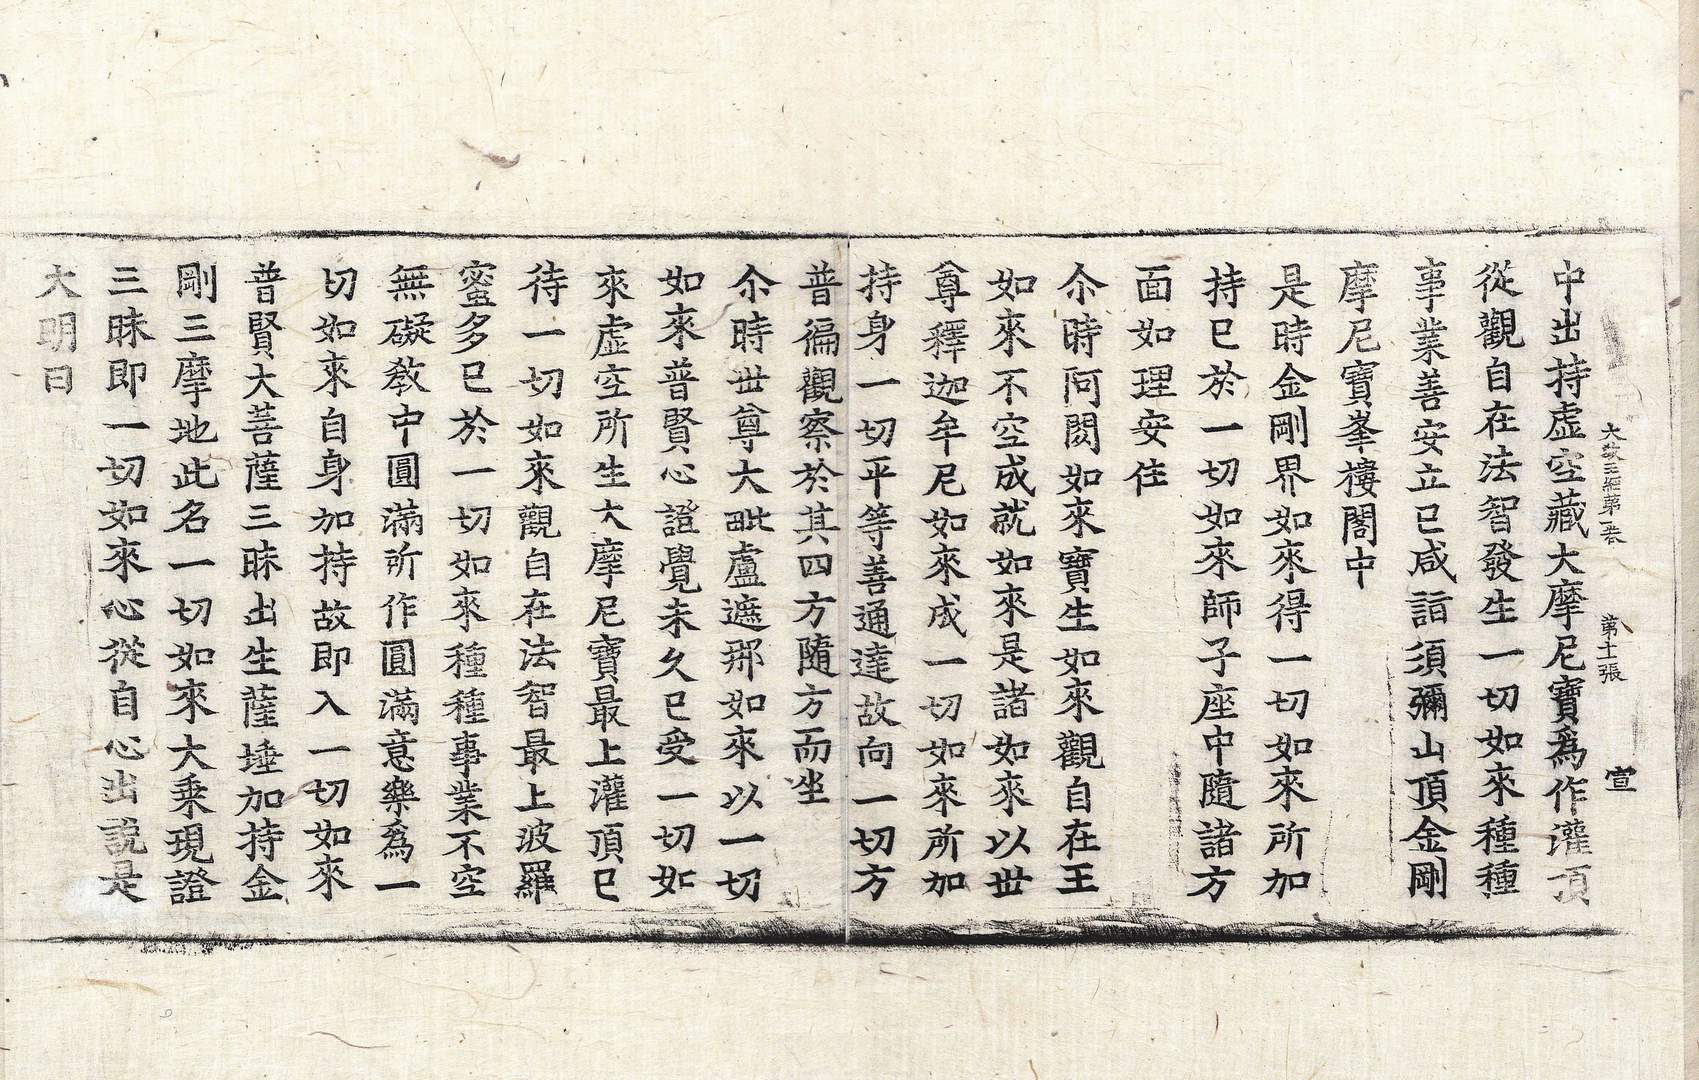 大教王經第一卷　第十張　宣
中出持虛空藏大摩尼寶爲作灌頂
從觀自在法智發生一切如來種種
事業善安立已咸詣須彌山頂金剛
摩尼寶峯樓閣中
是時金剛界如來得一切如來所加
持已於一切如來師子座中隨諸方
面如理安住
尒時阿閦如來寶生如來觀自在王
如來不空成就如來是諸如來以世
尊釋迦牟尼如來成一切如來所加
持身一切平等善通達故向一切方
普徧觀察於其四方隨方而坐
尒時世尊大毗盧遮那如來以一切
如來普賢心證覺未久已受一切如
來虛空所生大摩尼寶最上灌頂已
待一切如來觀自在法智最上波羅
蜜多已於一切如來種種事業不空
無礙教中圓滿所作圓滿意樂爲一
切如來自身加持故即入一切如來
普賢大菩薩三昧出生薩埵加持金
剛三摩地此名一切如來大乘現證
三昧即一切如來心從自心出說是
大明曰